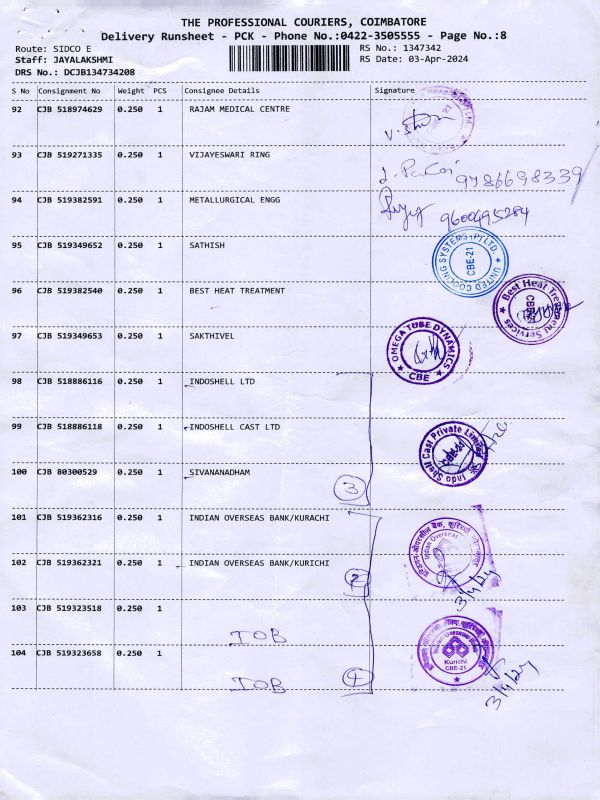 THE PROFESSIONAL COURIERS, COIMBATORE
Delivery Runsheet - PCK - Phone No.:0422-3505555 - Page No.:8
Route: SIDCO E
RS No.: 1347342
Staff: JAYALAKSHMI
RS Date: 03-Apr-2024
DRS No.: DCJB134734208
S No Consignment No Weight PCS Consignee Details Signature
92 CJB 518974629 0.250 1 RAJAM MEDICAL CENTRE
93 CJB 519271335 0.250 1 VIJAYESWARI RING
9786698339
94 CJB 519382591 0.250 1 METALLURGICAL ENGG
9600495284
95 CJB 519349652 0.250 1 SATHISH
UNITED COOLING SYSTEMS (P) LTD.
CBE-21
96 CJB 519382540 0.250 1 BEST HEAT TREATMENT
Best Heat Treatment Services
CBE-21
97 CJB 519349653 0.250 1 SAKTHIVEL
OMEGA TUBE DYNAMICS
CBE
98 CJB 518886116 0.250 1 INDOSHELL LTD
99 CJB 518886118 0.250 1 INDOSHELL CAST LTD
Indo Shell Cast Private Limited
100 CJB 80300529 0.250 1 SIVANANADHAM
3
101 CJB 519362316 0.250 1 INDIAN OVERSEAS BANK/KURACHI
Indian Overseas
102 CJB 519362321 0.250 1 INDIAN OVERSEAS BANK/KURICHI
2
3/4/24
103 CJB 519323518 0.250 1
IOB
104 CJB 519323658 0.250 1
Kurichi
CBE-21
IOB
3/4/24